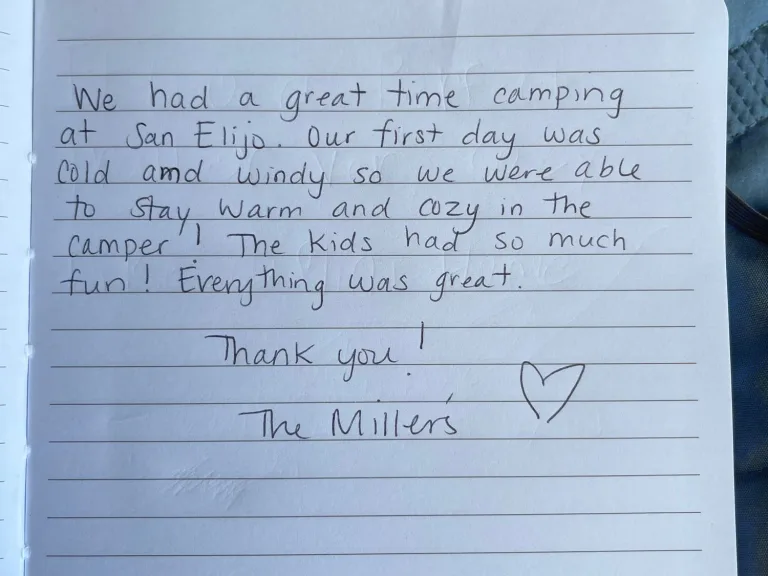 We had a great time camping
at San Elijo. Our first day was
cold amd windy so we were able
to stay warm and cozy in the
camper! The kids had so much
fun! Everything was great.
Thank you!
The Miller's